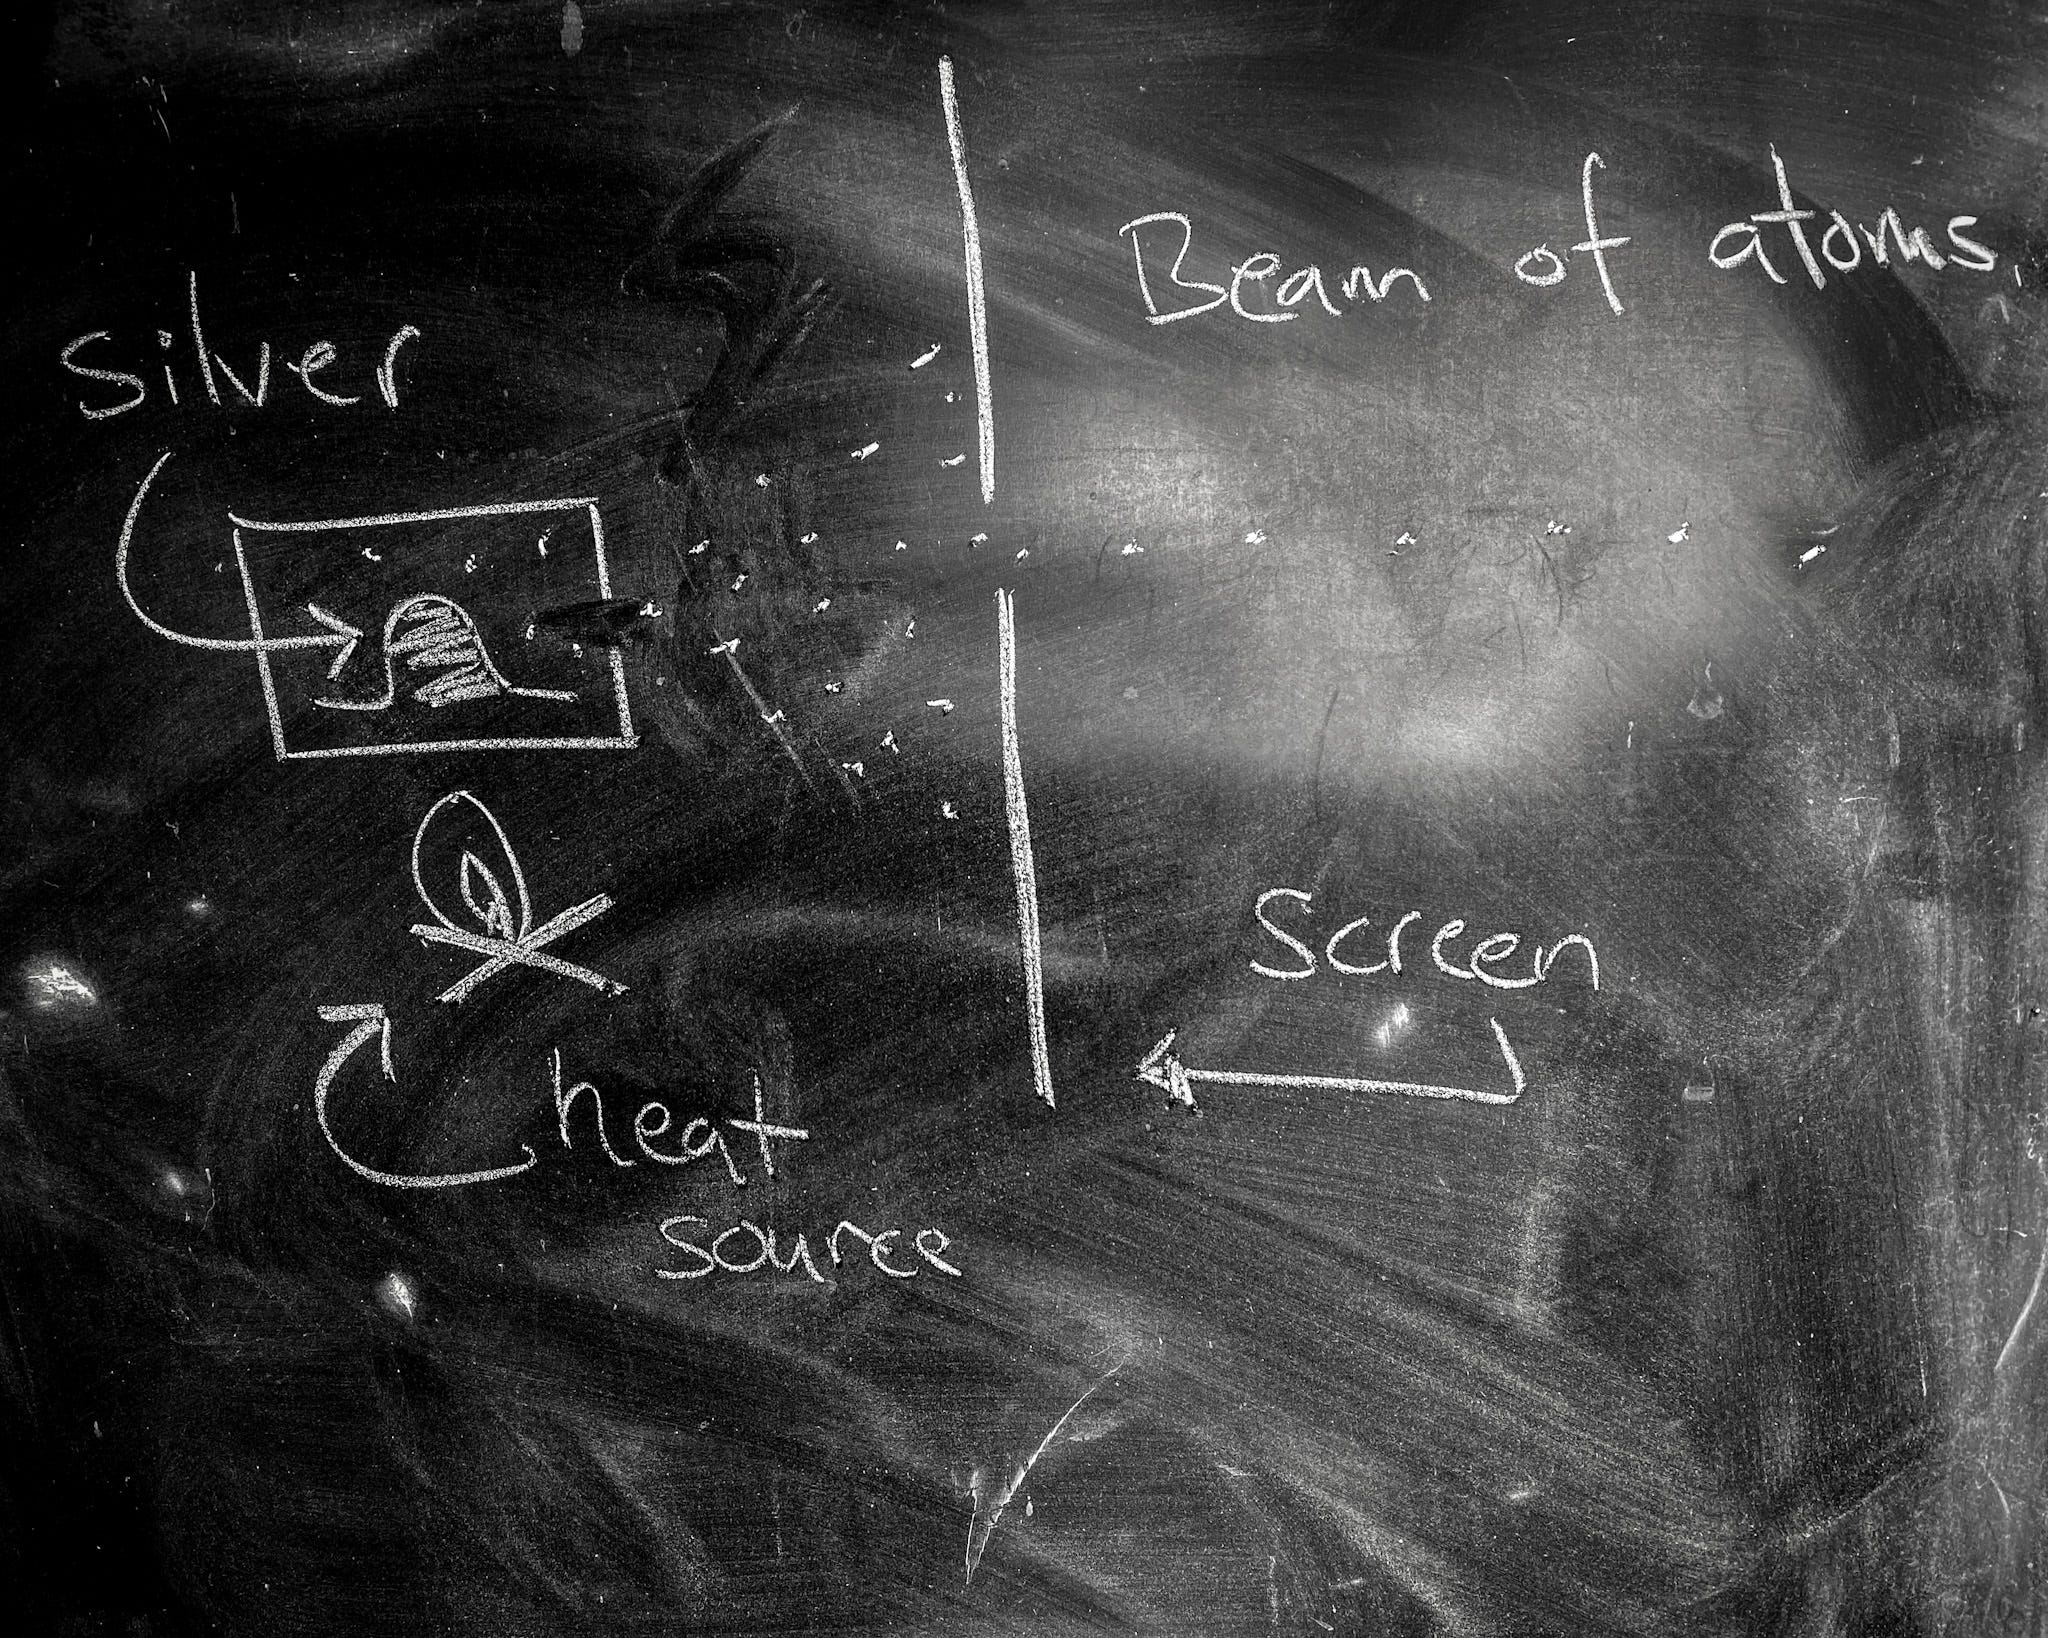 Beam of atoms.
silver
Screen
heat
source